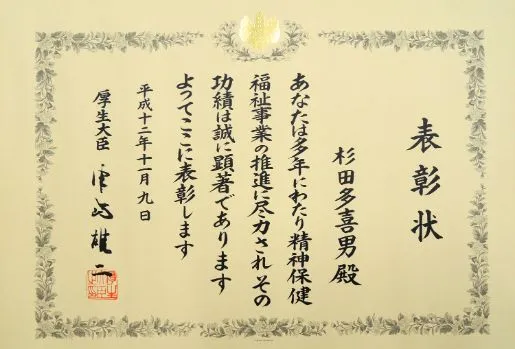 表彰状
杉田多喜男殿
あなたは多年にわたり精神保健
福祉事業の推進に尽力されその
功績は誠に顕著であります
よってここに表彰します
平成十二年十一月九日
厚生大臣 津島雄二